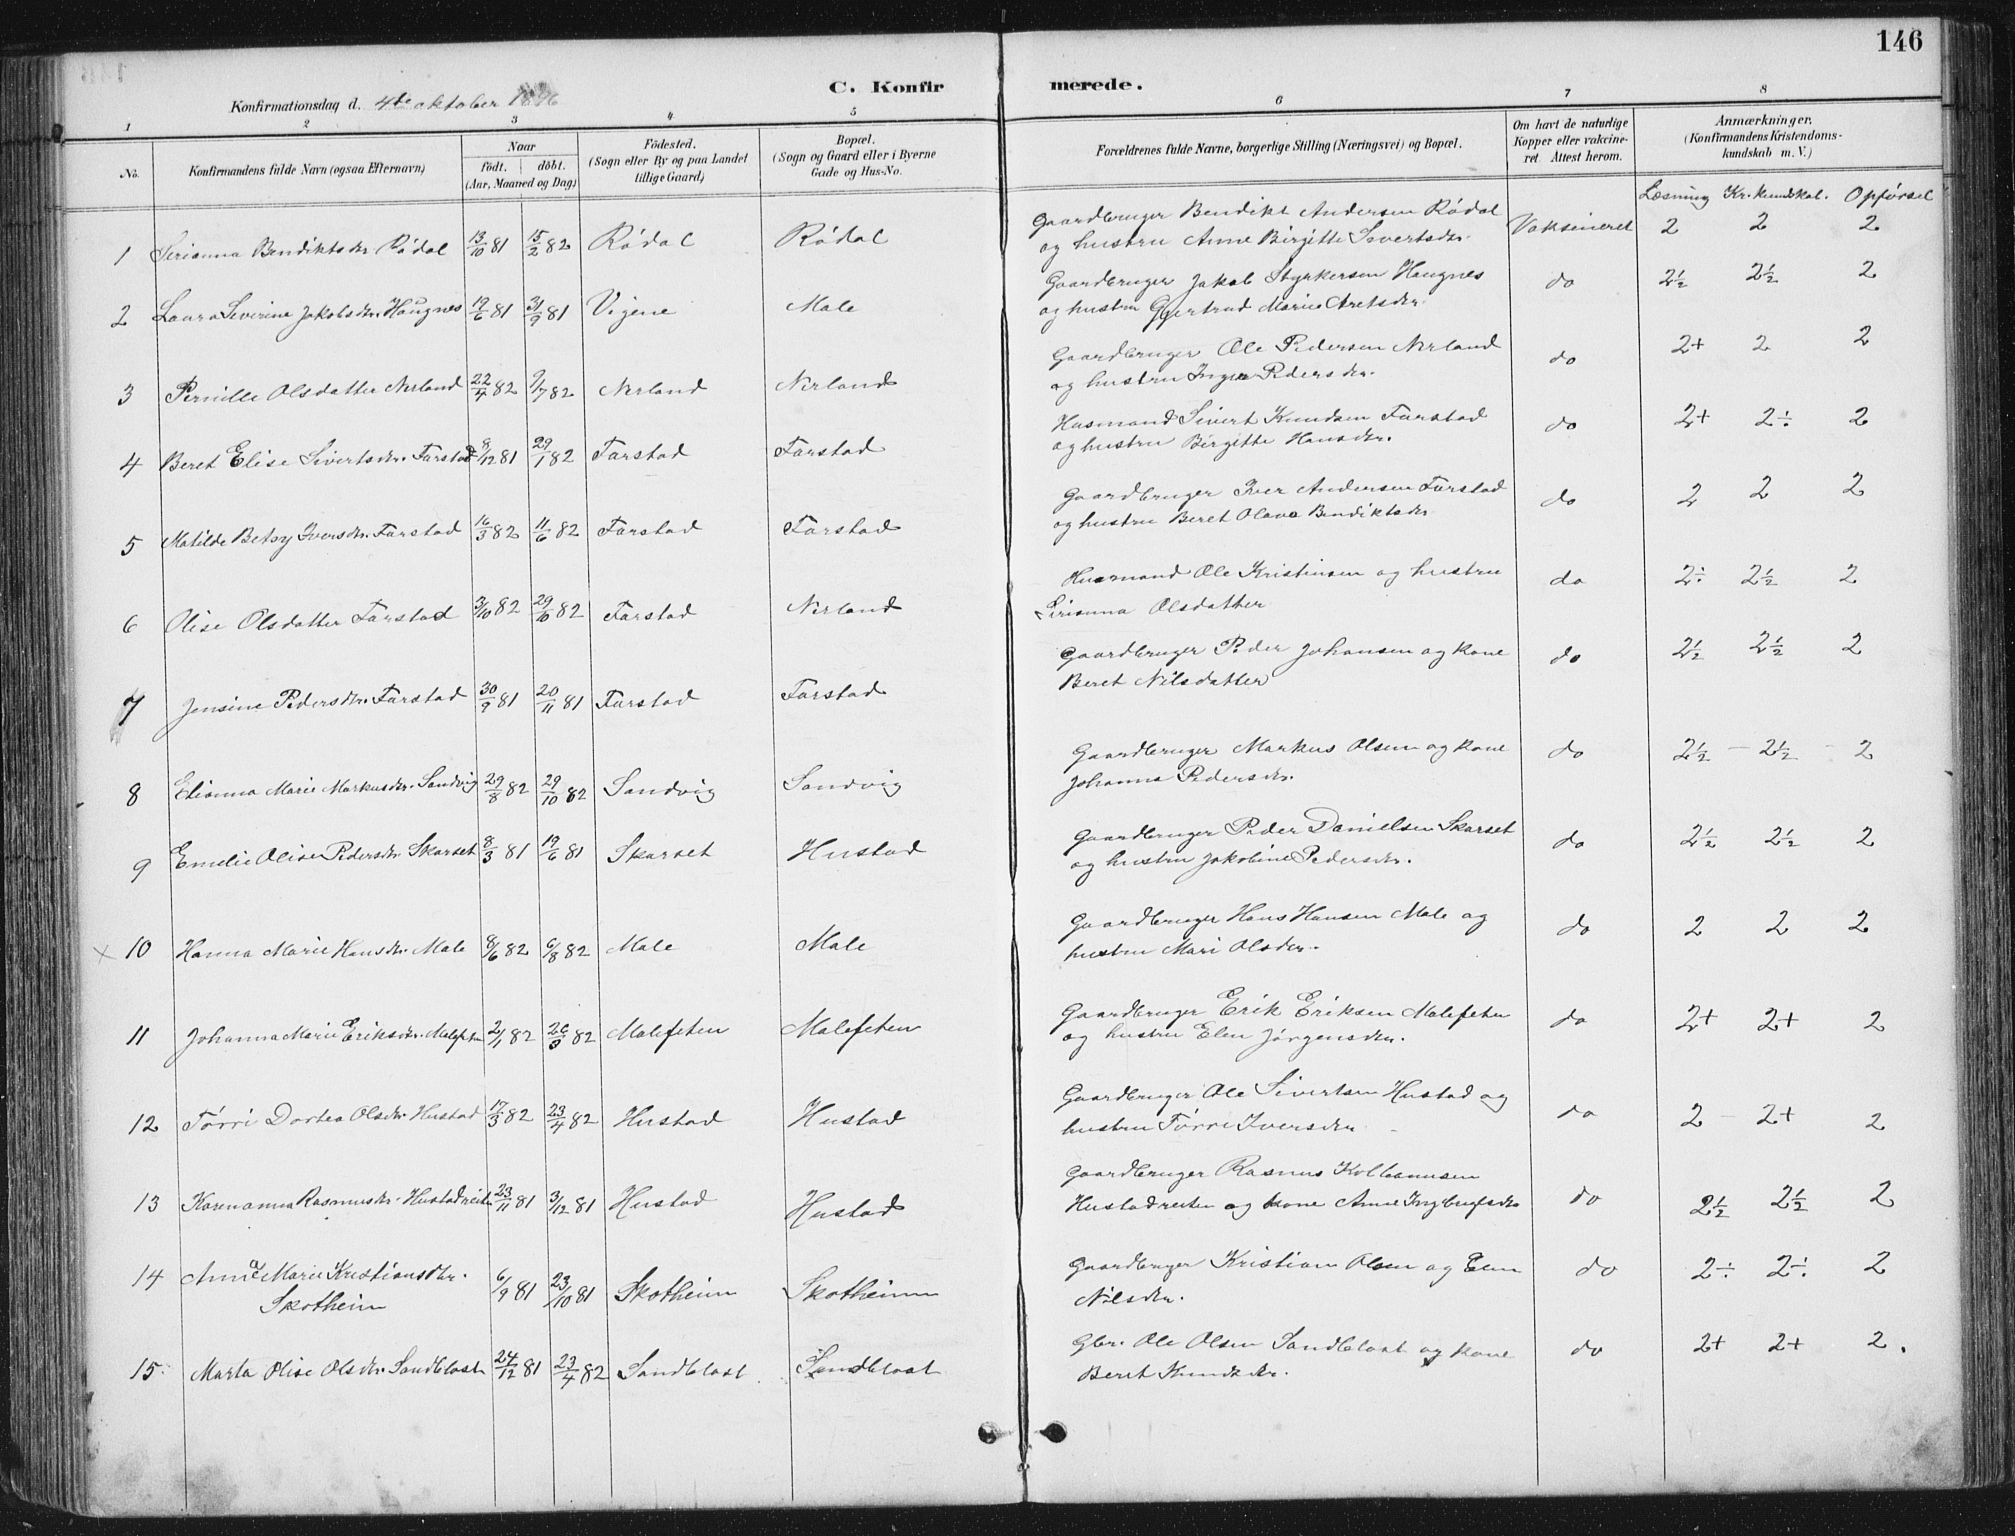 146
C. Konfirmerede.
Konfirmationsdag d. 4de oktober 1896
1 2 3 4 5 6 7 8
No. Konfirmandens fulde Navn (ogsaa Efternavn) Naar födt. döbt. (Aar, Maaned og Dag) Födested. (Sogn eller By og paa Landet tillige Gaard) Bopæl. (Sogn og Gaard eller i Byerne Gade og Hus-No.
Forældrenes fulde Navne, borgerlige Stilling (Næringsvei) og Bopæl. Om havt de naturlige Kopper eller vakcineret. Attest herom. Anmærkninger, (Konfirmandens Kristendomskundskab m. V.)
Læsning Kr. kundskab. Opførsel
1 Serianna Bendiktsdr Rödal 13/10 81 15/2 82 Rödal Rödal Gaardbruger Bendikt Andersen Rödal Vaksineret 2 2 2
og hustru Anne Birgitte Sivertsdr.
2 Laura Severine Jakobsdr. Haugnes 19/6 81 31/9 81 Vigene Male Gaardbruger Jakob Styrkersen Haugnes do 2½ 2½ 2
og hustru Gjertrud Marie Aretsdr.
3 Pernille Olsdatter Nerland 22/4 82 9/7 82 Nerland Nerland Gaardbruger Ole Pedersen Nerland do 2+ 2 2
og hustru Inger Pedersdr.
4 Beret Elise Sivertsdr. Farstad 8/12 81 29/1 82 Farstad Farstad Husmand Sivert Knudsen Farstad do 2+ 2÷ 2
og hustru Birgitte Hansdr.
5 Matilde Betsy Iversdr. Farstad 16/3 82 11/6 82 Farstad Farstad Gaardbruger Iver Andersen Farstad do 2 2 2
og hustru Beret Olava Bendiktsdr
6 Olise Olsdatter Farstad 3/10 82 29/10 82 Farstad Nerland Husmand Ole Kristiansen og hustru do 2÷ 2½ 2
Serianna Olsdatter
7 Jensine Pedersdr. Farstad 30/9 81 20/11 81 Farstad Farstad Gaardbruger Peder Johansen og kone do 2½ 2½ 2
Beret Nilsdatter
8 Elianna Marie Markusdr. Sandvig 29/8 82 29/10 82 Sandvig Sandvig Gaardbruger Markus Olsen og kone do 2½ - 2½ - 2
Johanna Pedersdr.
9 Emelie Olise Pedersdr. Skarset 8/3 81 19/6 81 Skarset Hustad Gaardbruger Peder Danielsen Skarset do 2½ 2½ 2
og hustru Jakobine Pedersdr.
x 10 Hanna Marie Hansdr. Male 8/6 82 6/8 82 Male Male Gaardbruger Hans Hansen Male og do 2 2 2
hustru Mari Olsdr.
11 Johanna Marie Eriksdr. Malefeten 2/1 82 82 Malefeten Malefeten Gaardbruger Erik Eriksen Malefeten do 2+ 2+ 2
og hustru Elen Jörgensdr.
12 Törri Dortea Olsdr. Hustad 17/3 82 23/4 82 Hustad Hustad Gaardbruger Ole Sivertsen Hustad og do 2 - 2+ 2
hustru Törri Iversdr
13 Karenanna Rasmusdr. Hustadreiten 23/11 81 3/12 81 Hustad Hustad Gaardbruger Rasmus Kolbeinusen
Hustadreiten og kone Anne Ingbrigtsdr do 2½ 2½ 2
14 Anne Marie Kristiansdtr. 6/9 81 23/10 81 Skotheim Skotheim Gaardbruger Kristian Olsen og Elen do 2÷ 2÷ 2
Skotheim Nilsdr.
15. Marta Olise Olsdr. Sandblast 24/12 81 23/4 82 Sandblast. Sandblast Gbr. Ole Olsen Sandblast og kone do 2+ 2+ 2.
Beret Knudsdr.